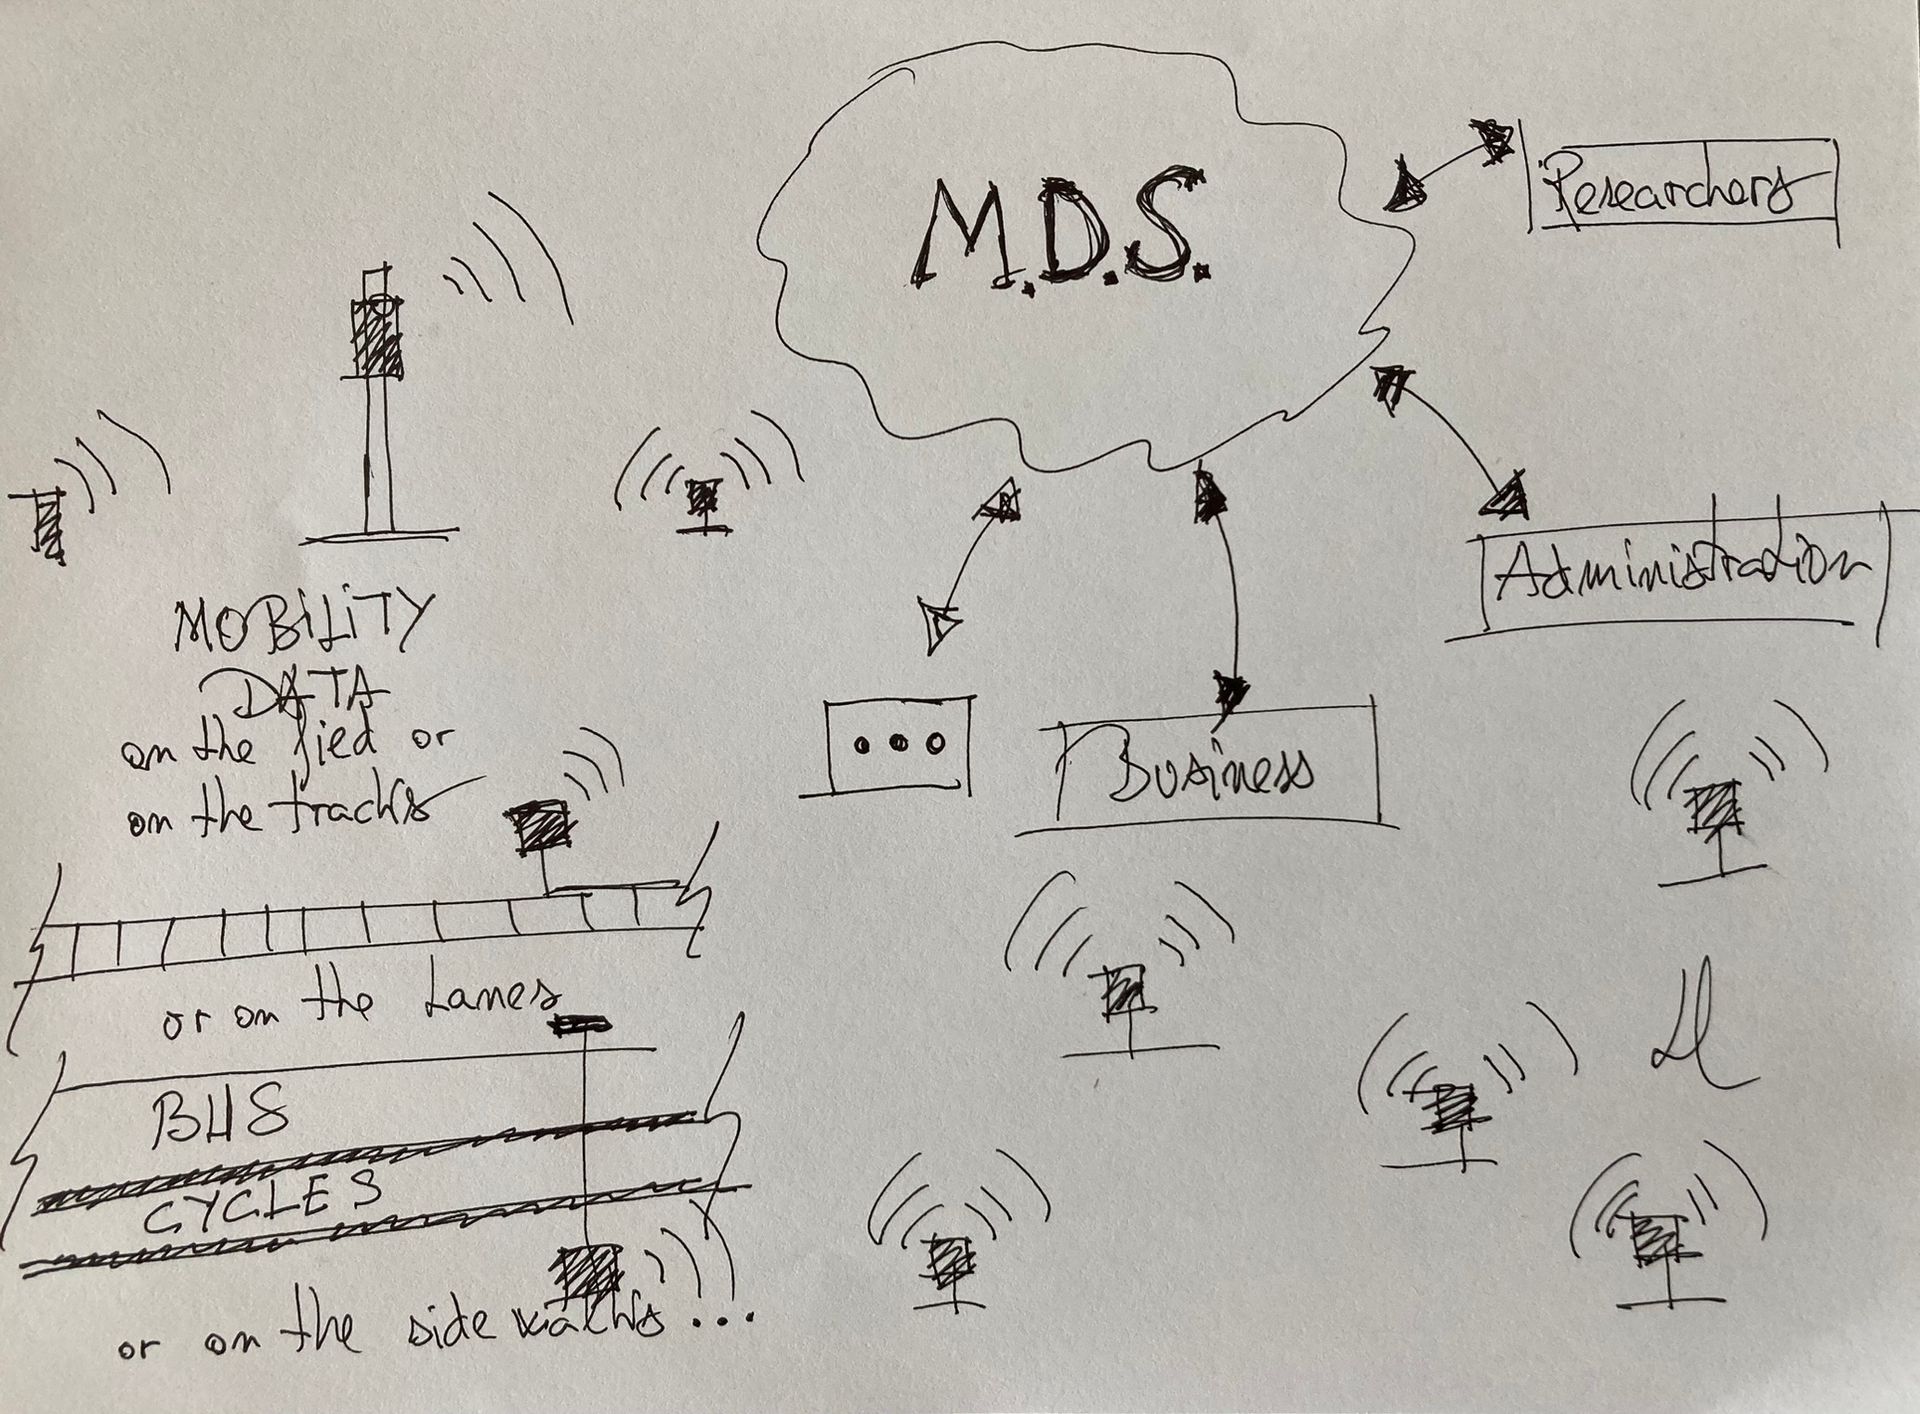 M.D.S.
Researchers
Administration
Business
MOBiLiTY
DATA
on the fied or
on the tracks
or on the Lanes
BUS
CYCLES
or on the side walks...